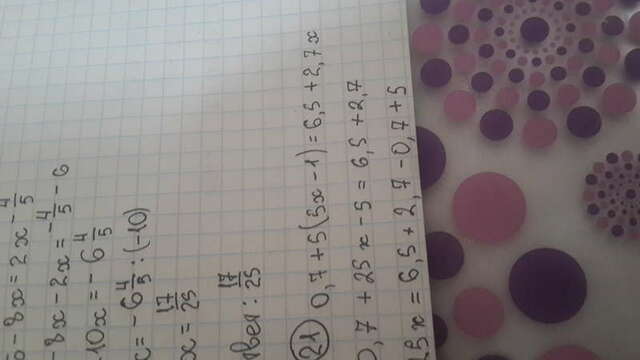 - 8x = 2x - 4/5
- 8x - 2x = - 4/5 - 6
10x = - 6 4/5
x = - 6 4/5 : (-10)
x = 17/25
твет : 17/25
21) 0,7 + 5(5x - 1) = 6,5 + 2,7x
0,7 + 25x - 5 = 6,5 + 2,7
5x = 6,5 + 2,7 - 0,7 + 5